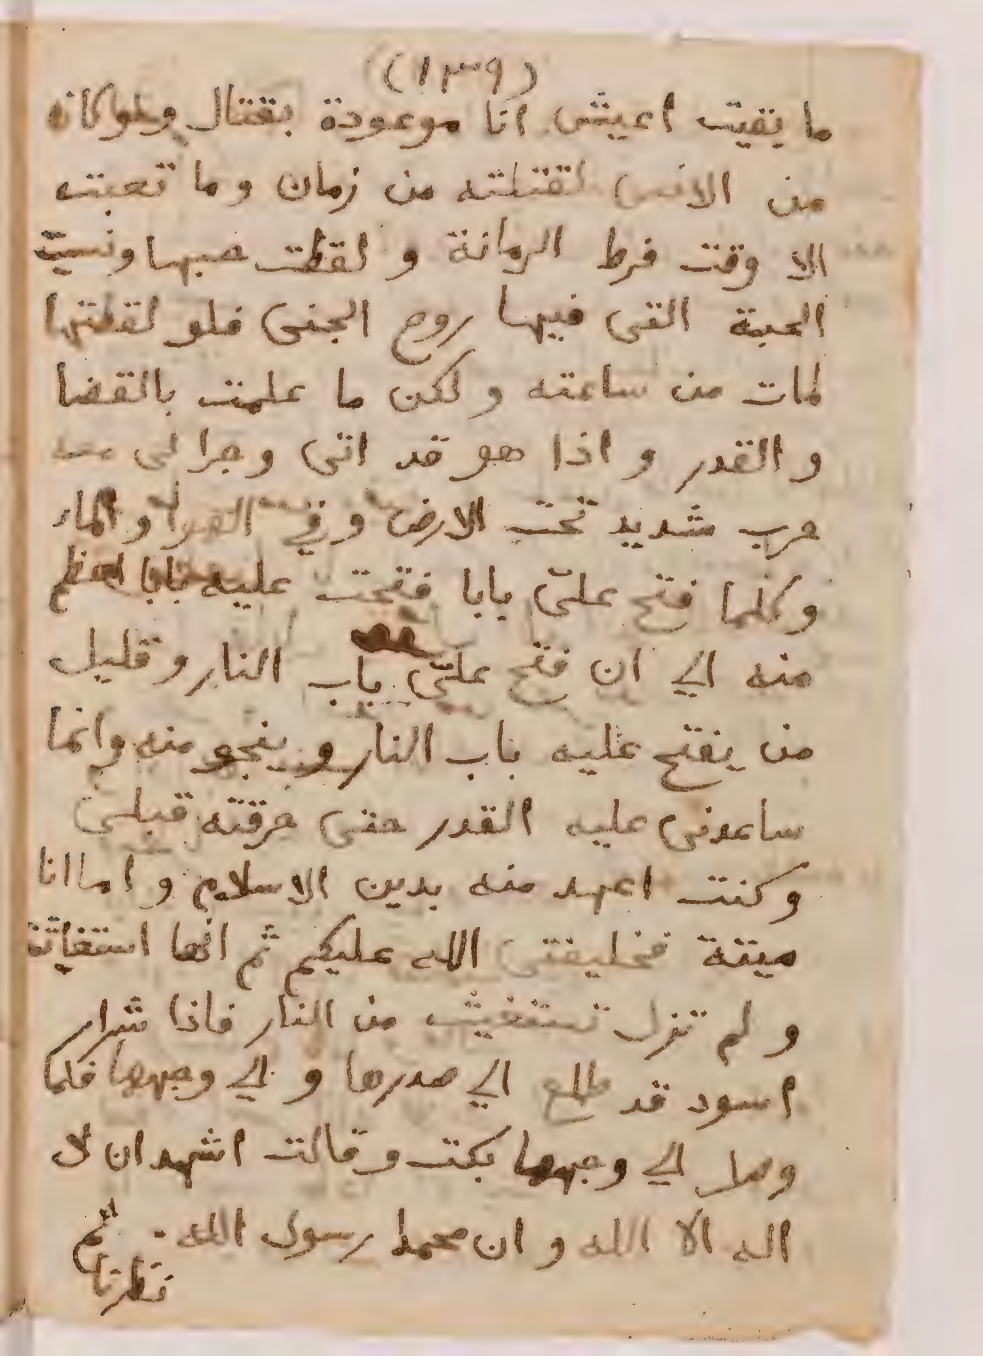 (١٣٩)
ما بقيت اعيش انا موعودة بقتال ولو كان
من الانس لقتلته من زمان وما تعبت
الا وقت فرط الرمانة و لقطت حبها ونسيت
الحبة التى فيها روح الجنى فلو لقطتها
لمات من ساعته ولكن ما علمت بالقضا
و القدر و اذا هو قد اتى وجرا لى معه
حرب شديد تحت الارض و في الهوا والماء
وكلما فتح علىّ بابا فتحت عليه بابا اعظم
منه الي ان فتح علىّ باب النار وقليل
من يفتح عليه باب النار وينجو منه وانما
ساعدنى عليه القدر حتى حرقته قبلى
وكنت اعهد منه بدين الاسلام و اما انا
ميتة فخليفتى الله عليكم ثم انها استغاثت
و لم تزل تستغيث من النار فاذا شرار
اسود قد طلع الي صدرها و الي وجهها فلما
وصل الي وجهها بكت وقالت اشهد ان لا
اله الا الله و ان محمدا رسول الله. ثم
نظرنا